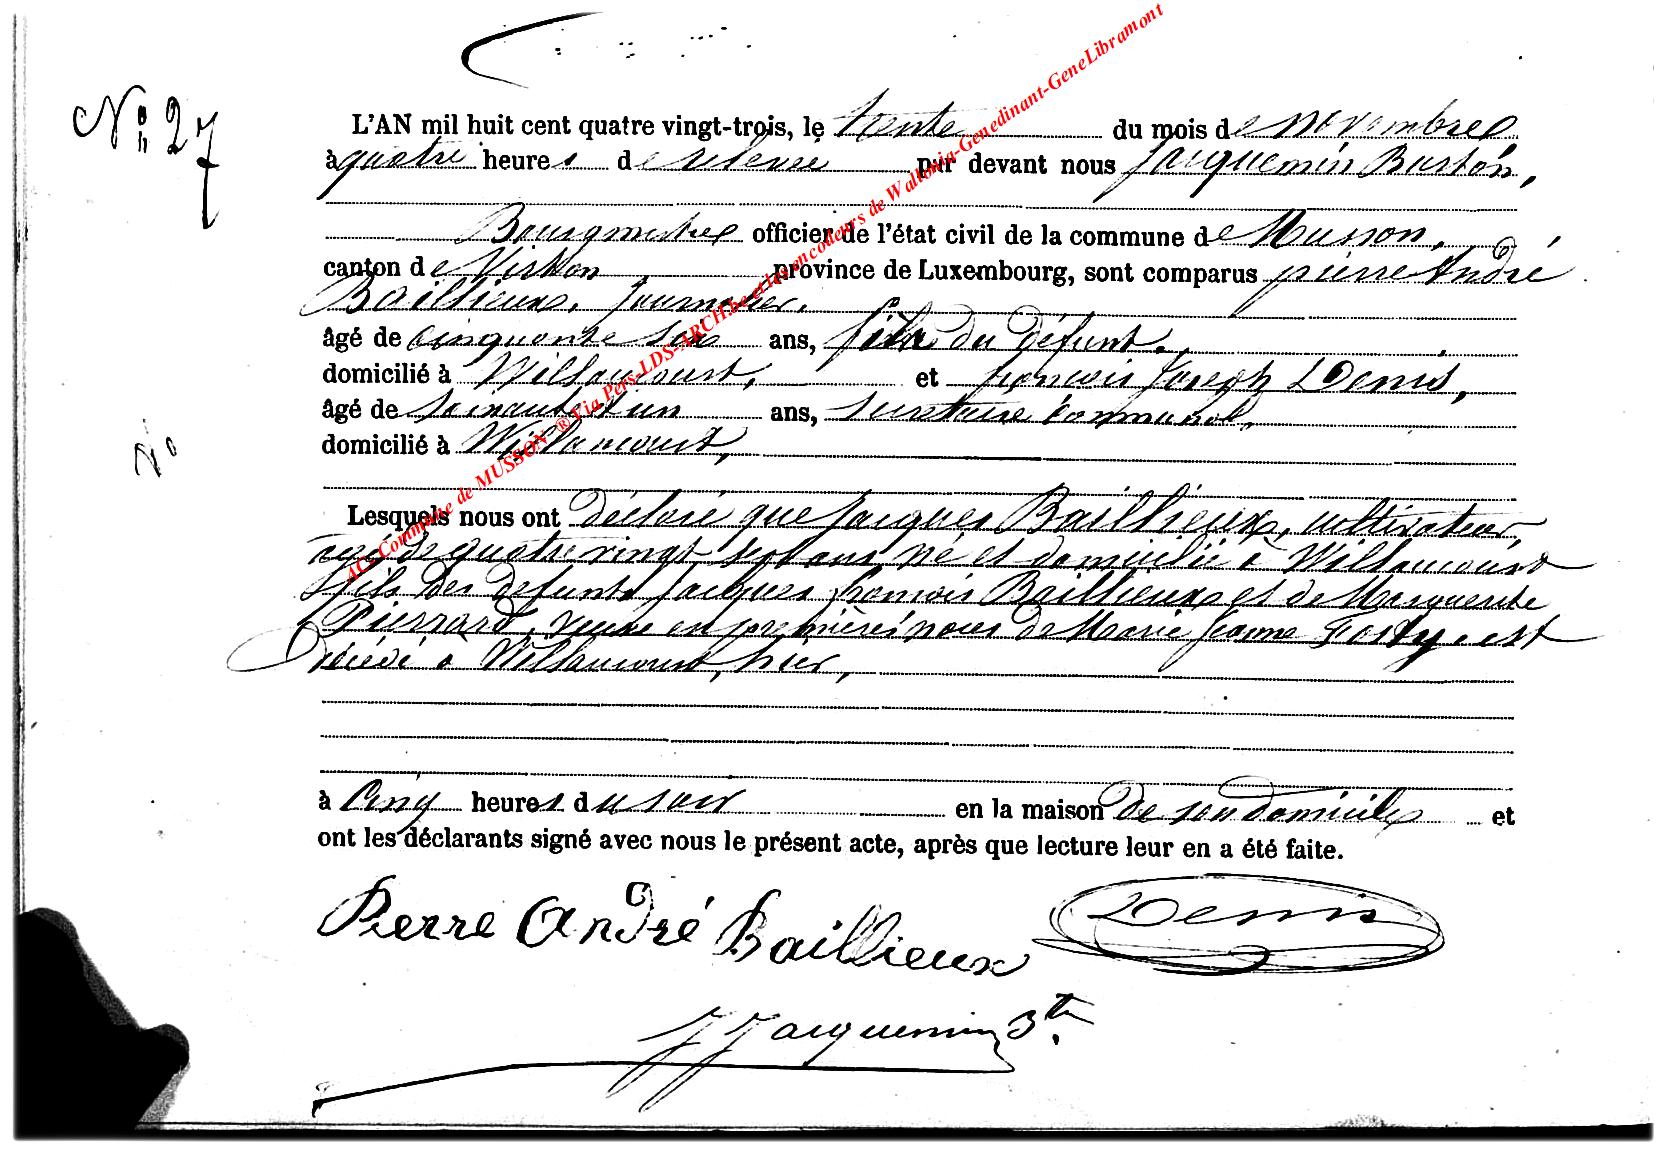 N° 27
L'AN mil huit cent quatre vingt-trois, le trente du mois de novembre
à quatre heures de relevée par devant nous Jacquemin Baston,
Bourgmestre officier de l'état civil de la commune de Musson,
canton de Virton province de Luxembourg, sont comparus pierre André
Baillieux, journalier,
âgé de cinquante six ans, fils du défunt,
domicilié à Willancourt, et françois Joseph Denis,
âgé de soixante et un ans, secrétaire communal,
domicilié à Willancourt,
N°
Lesquels nous ont déclaré que Jacques Baillieux, cultivateur,
agé de quatre vingt sept ans né et domicilié à Willancourt
fils des defunts Jacques françois Baillieux et de Marguerite
Pierrard, veuve en premières noces de Marie Jeanne est
décédé à Willancourt, hier,
à Cinq heures du soir en la maison de son domicile et
ont les déclarants signé avec nous le présent acte, après que lecture leur en a été faite.
Pierre André Baillieux
Denis
J Jacquemin Btn
AC. Commune de MUSSON ® Via Pers-LDS-ARCH.be et les encodeurs de Wallonia-Genedinant-GeneLibramont